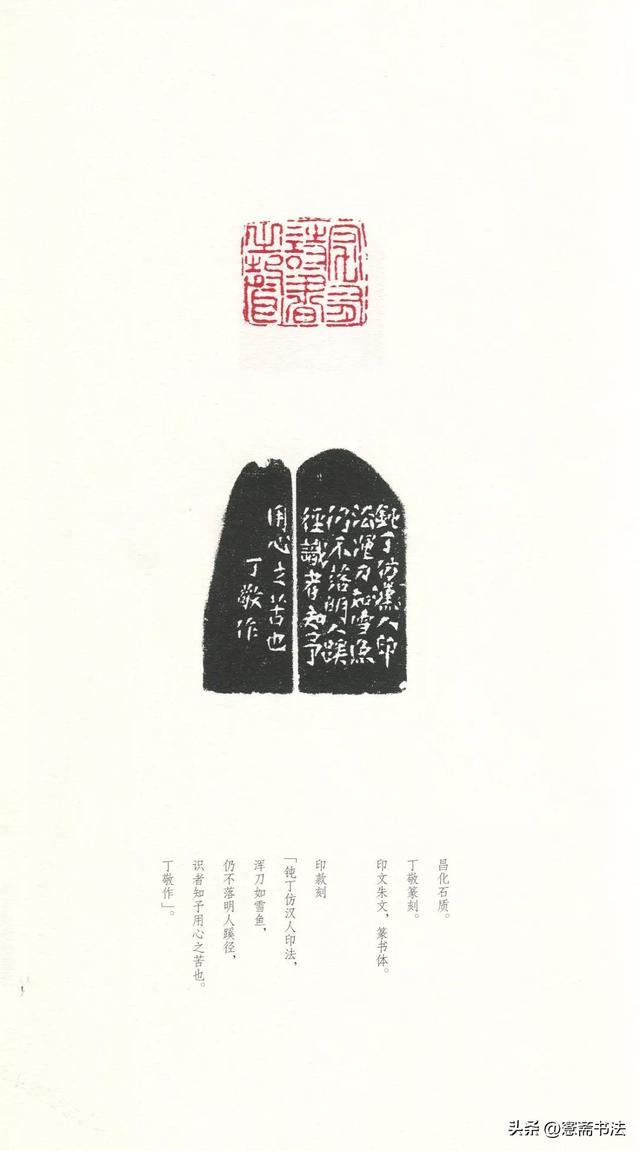 鈍丁仿漢人印
法渾刀如雪魚
仍不落明人蹊
徑識者知予
用心之苦也
丁敬作
昌化石质。
丁敬篆刻。
印文朱文，篆书体。
印款刻
「钝丁仿汉人印法，
浑刀如雪鱼，
仍不落明人蹊径，
识者知予用心之苦也。
丁敬作」。
头条 @窓斋书法